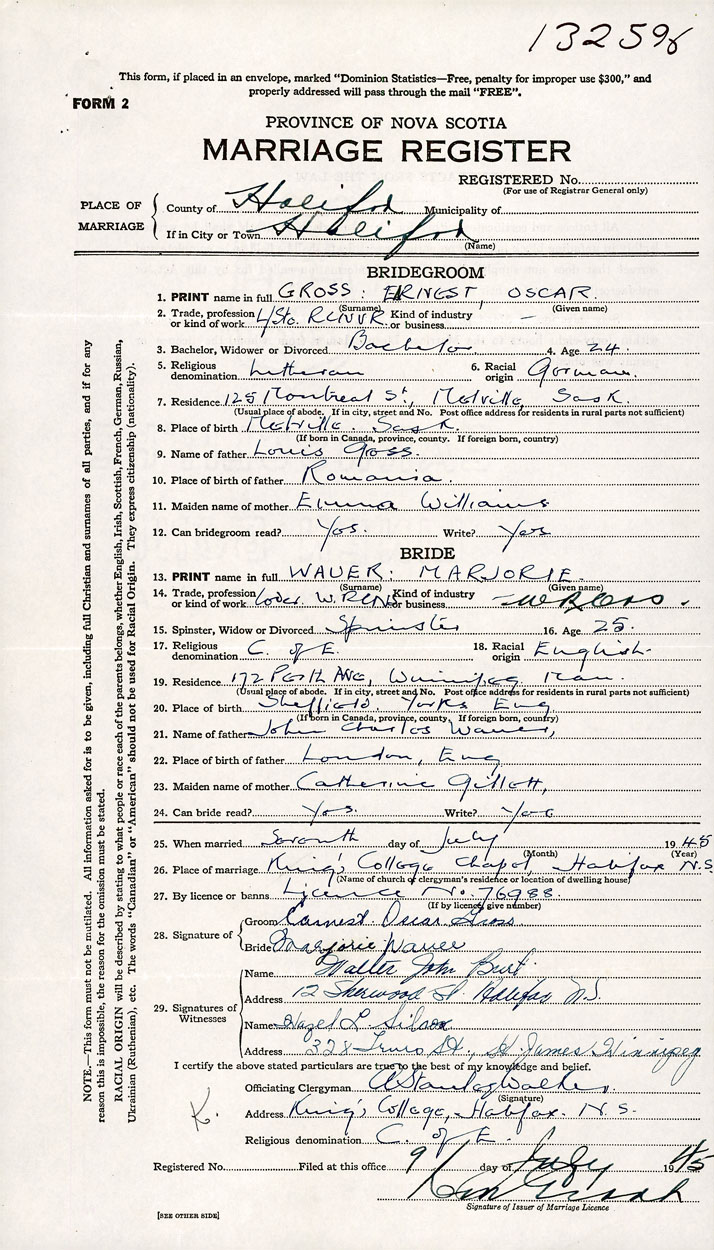 132598
This form, if placed in an envelope, marked "Dominion Statistics—Free, penalty for improper use $300," and
properly addressed will pass through the mail "FREE".
FORM 2
PROVINCE OF NOVA SCOTIA
MARRIAGE REGISTER
REGISTERED No.
(For use of Registrar General only)
PLACE OF MARRIAGE
County of Halifax Municipality of
If in City or Town Halifax
(Name)
BRIDEGROOM
1. PRINT name in full GROSS: ERNEST, OSCAR.
(Surname) (Given name)
2. Trade, profession or kind of work L/Sto. RCNVR Kind of industry or business —
3. Bachelor, Widower or Divorced Bachelor 4. Age 24.
5. Religious denomination Lutheran 6. Racial origin German.
7. Residence 125 Montreal St, Melville, Sask.
(Usual place of abode. If in city, street and No. Post office address for residents in rural parts not sufficient)
8. Place of birth Melville. Sask.
(If born in Canada, province, county. If foreign born, country)
9. Name of father Louis Gross.
10. Place of birth of father Romania.
11. Maiden name of mother Emma Williams
12. Can bridegroom read? Yes. Write? Yes
BRIDE
13. PRINT name in full WAUER: MARJORIE.
(Surname) (Given name)
14. Trade, profession or kind of work W.RCNS Kind of industry or business
15. Spinster, Widow or Divorced Spinster 16. Age 25.
17. Religious denomination C. of E. 18. Racial origin English.
19. Residence 172 Perth Ave, Winnipeg Man.
(Usual place of abode. If in city, street and No. Post office address for residents in rural parts not sufficient)
20. Place of birth Sheffield. Yorks Eng
(If born in Canada, province, county. If foreign born, country)
21. Name of father John Charles Wauer,
22. Place of birth of father London, Eng
23. Maiden name of mother Catherine Gillott,
24. Can bride read? Yes. Write? Yes
25. When married Seventh day of July 1945
(Month) (Year)
26. Place of marriage King's College Chapel, Halifax N.S.
(Name of church or clergyman's residence or location of dwelling house)
27. By licence or banns Licence No. 76988.
(If by licence, give number)
28. Signature of
Groom Earnest Oscar Gross
Bride Marjorie Wauer
29. Signatures of Witnesses
Name Walter John Burt
Address 12 Sherwood St. Halifax N.S.
Name Hazel L. Silcox
Address 328 Truro St., St James Winnipeg
I certify the above stated particulars are true to the best of my knowledge and belief.
Officiating Clergyman A Stanley Walker.
(Signature)
K.
Address King's College, Halifax. N.S.
Religious denomination C. of E.
Registered No. Filed at this office 9 day of July 1945
Signature of Issuer of Marriage Licence
[SEE OTHER SIDE]
NOTE.—This form must not be mutilated. All information asked for is to be given, including full Christian and surnames of all parties, and if for any
reason this is impossible, the reason for the omission must be stated.
RACIAL ORIGIN will be described by stating to what people or race each of the parents belongs, whether English, Irish, Scottish, French, German, Russian,
Ukrainian (Ruthenian), etc. The words "Canadian" or "American" should not be used for Racial Origin. They express citizenship (nationality).